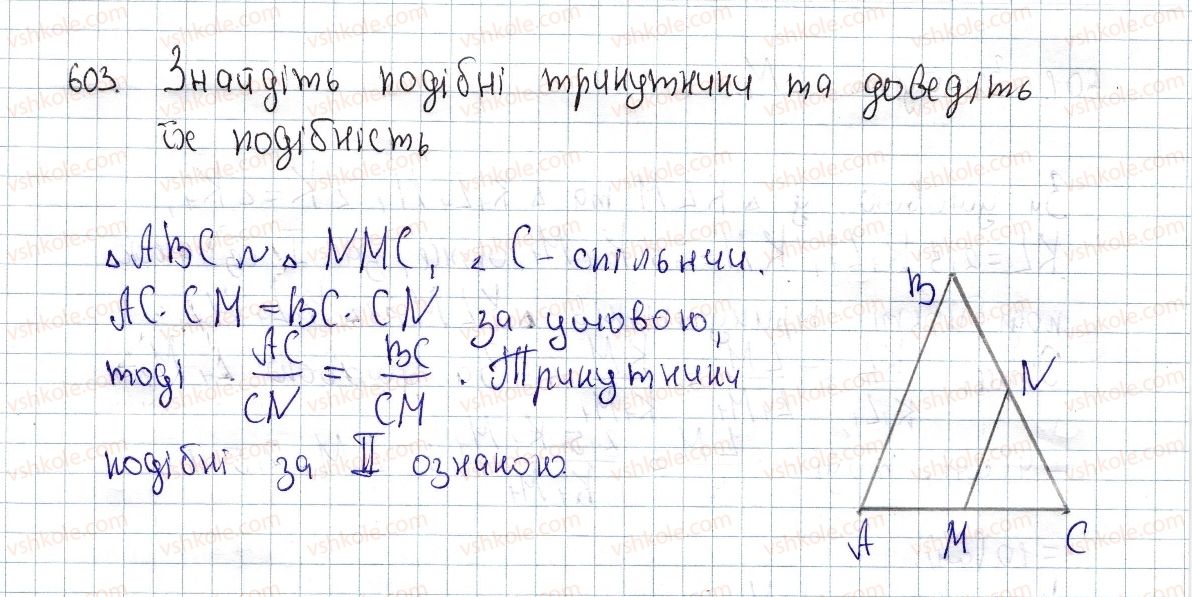 603. Знайдіть подібні трикутники та доведіть
їх подібність
△ABC ∾ △NMC, ∠C - спільний.
AC · CM = BC · CN за умовою,
тоді AC/CN = BC/CM. Трикутники
подібні за II ознакою.
B
N
A M C